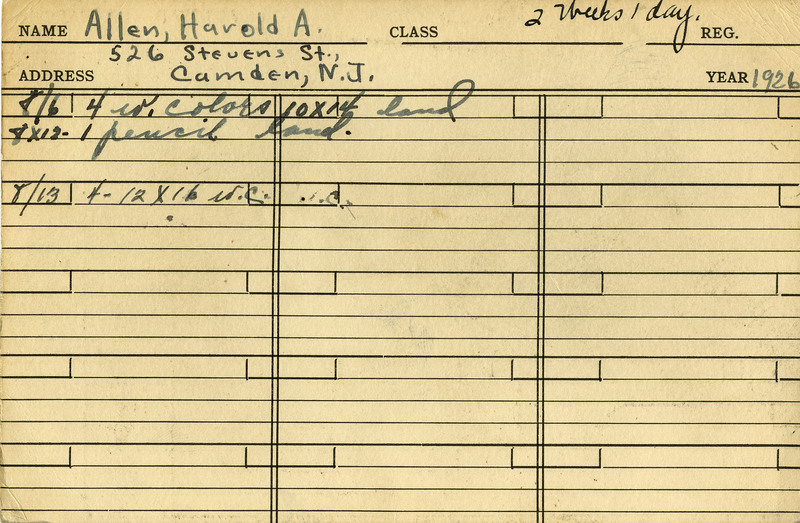 NAME Allen, Harold A. CLASS 2 Weeks 1 day. REG.
526 Stevens St.,
ADDRESS Camden, N.J. YEAR 1926
8/6 4 w. colors 10X14 land
8X12- 1 pencil land.
8/13 4- 12X16 w.c.